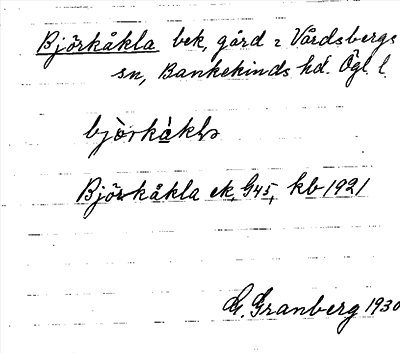 Björkåkla bek, gård i Vårdsbergs
sn, Bankekinds hd. Ögl. l.
Björkåkla ek, G45, kb 1921
G. Granberg 1930